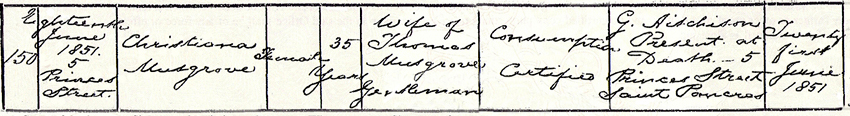 150
Eighteenth
June
1851.
5
Princes
Street.
Christiana
Musgrove
Female
35
Years
Wife of
Thomas
Musgrove
Gentleman
Consumption
Certified
G. Aitchison
Present at
Death. 5
Princes Street
Saint Pancras
Twenty
first
June
1851